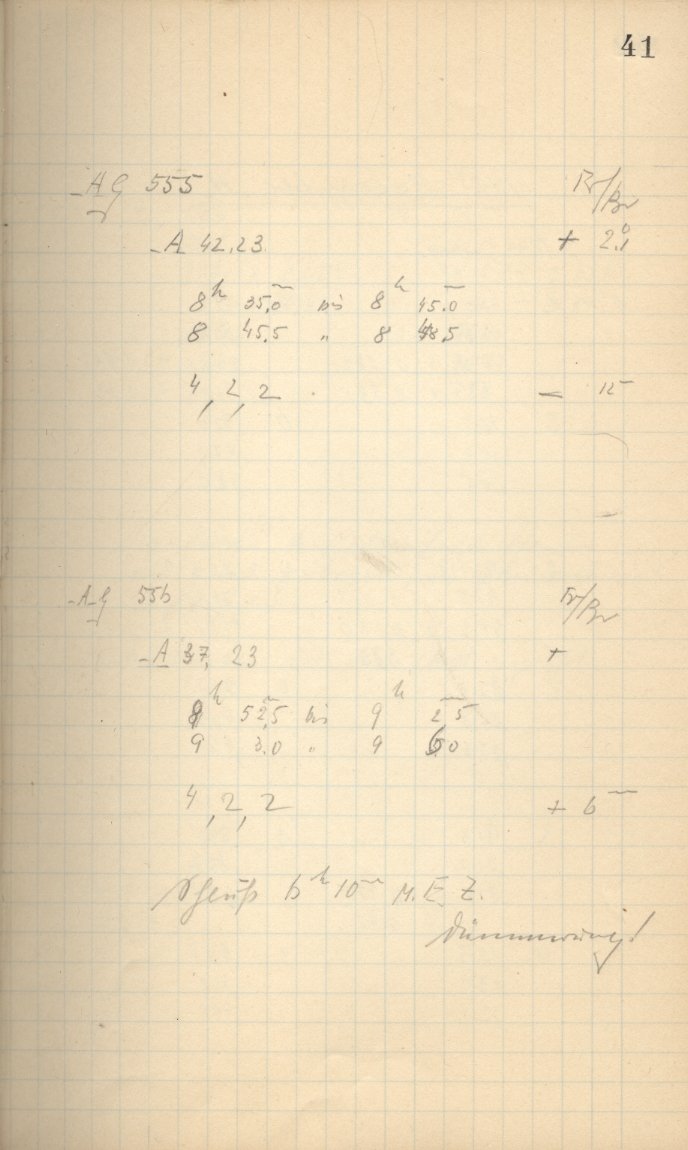 41
AG 555
A 42,23 + 2,0
8h 35,0m bis 8h 45,0m
8 45,5 " 8 48,5
4, 2, 2 — 12m
AG 556
A 37, 23 +
8h 52,5m bis 9h 2,5m
9 3,0 " 9 6,0
4, 2, 2 + 6m
Schluß 6h 10m M.E.Z.
Dämmerung!